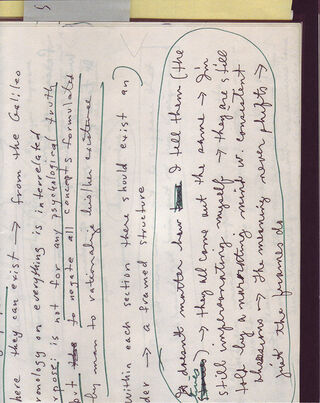 here they can exist → from the Galileo
ronology on everything is interrelated
rpose: is not for any psychological truth
but to negate all concepts formulated
by man to rationalize his/her existence
within each section there should exist an)
der → a framed structure
It doesn't matter how I tell them (the
→ they all come out the same → I'm
still impersonating myself → they are still
told by a narrating mind w: consistent
obsessions → The meaning never shifts →
just the frames do